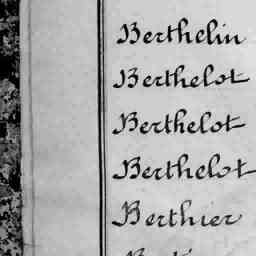 Berthelin
Berthelot
Berthelot
Berthelot
Berthier